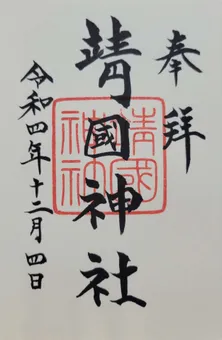 奉拝
靖國神社
令和四年十二月四日
靖國
神社